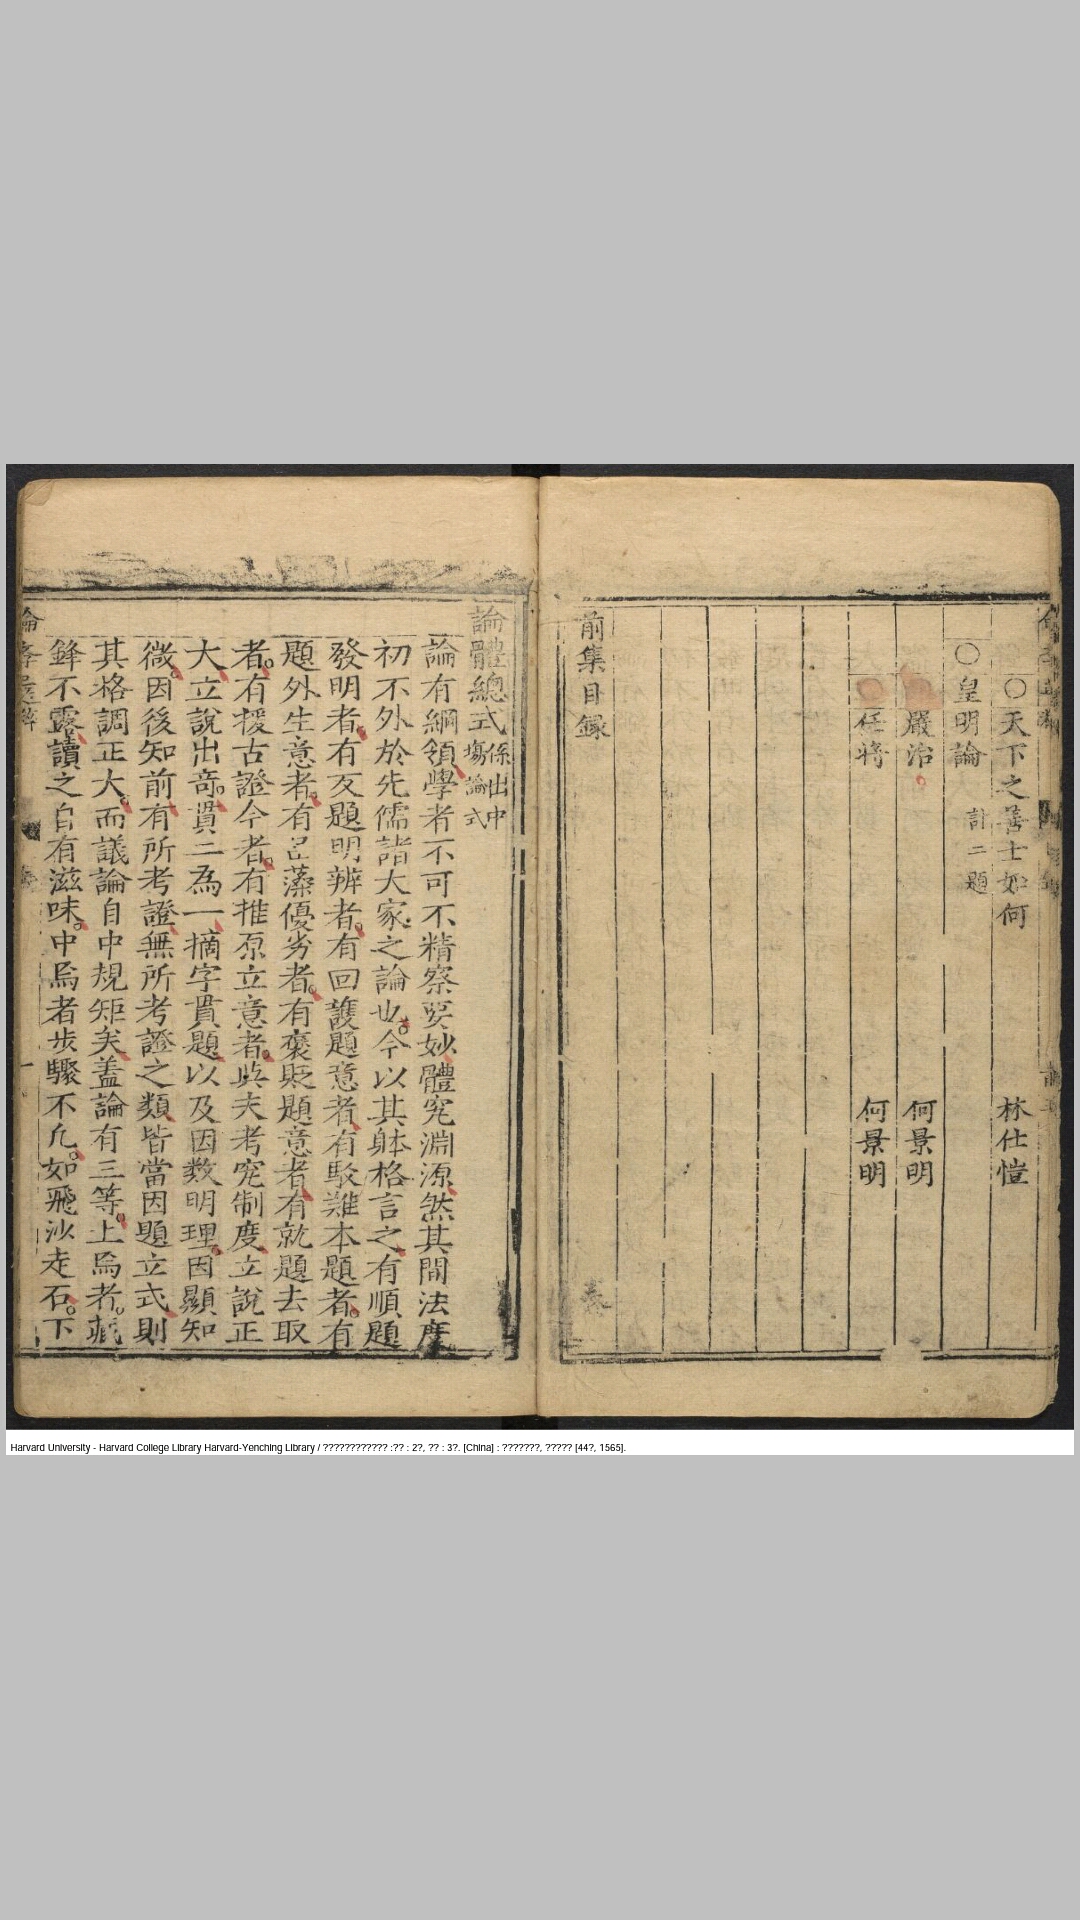 ○天下之善士如何 林仕愷
○皇明論 計二題
嚴治 何景明
任將 何景明
前集目録
論體總式 係出中塲論式
論有綱領學者不可不精察要妙體究淵源然其間法度
初不外於先儒諸大家之論也今以其躰格言之有順題
發明者有反題明辨者有回護題意者有駁難本題者有
題外生意者有品藻優劣者有褒貶題意者有就題去取
者有援古證今者有推原立意者與夫考究制度立說正
大立說出竒貫二為一摘字貫題以及因数明理因顯知
微因後知前有所考證無所考證之類皆當因題立式則
其格調正大而議論自中規矩矣蓋論有三等上焉者藏
鋒不露讀之自有滋味中焉者步驟不凡如飛沙走石下
Harvard University - Harvard College Library Harvard-Yenching Library / ???????????? :?? : 2?, ?? : 3?. [China] : ???????, ????? [44?, 1565].